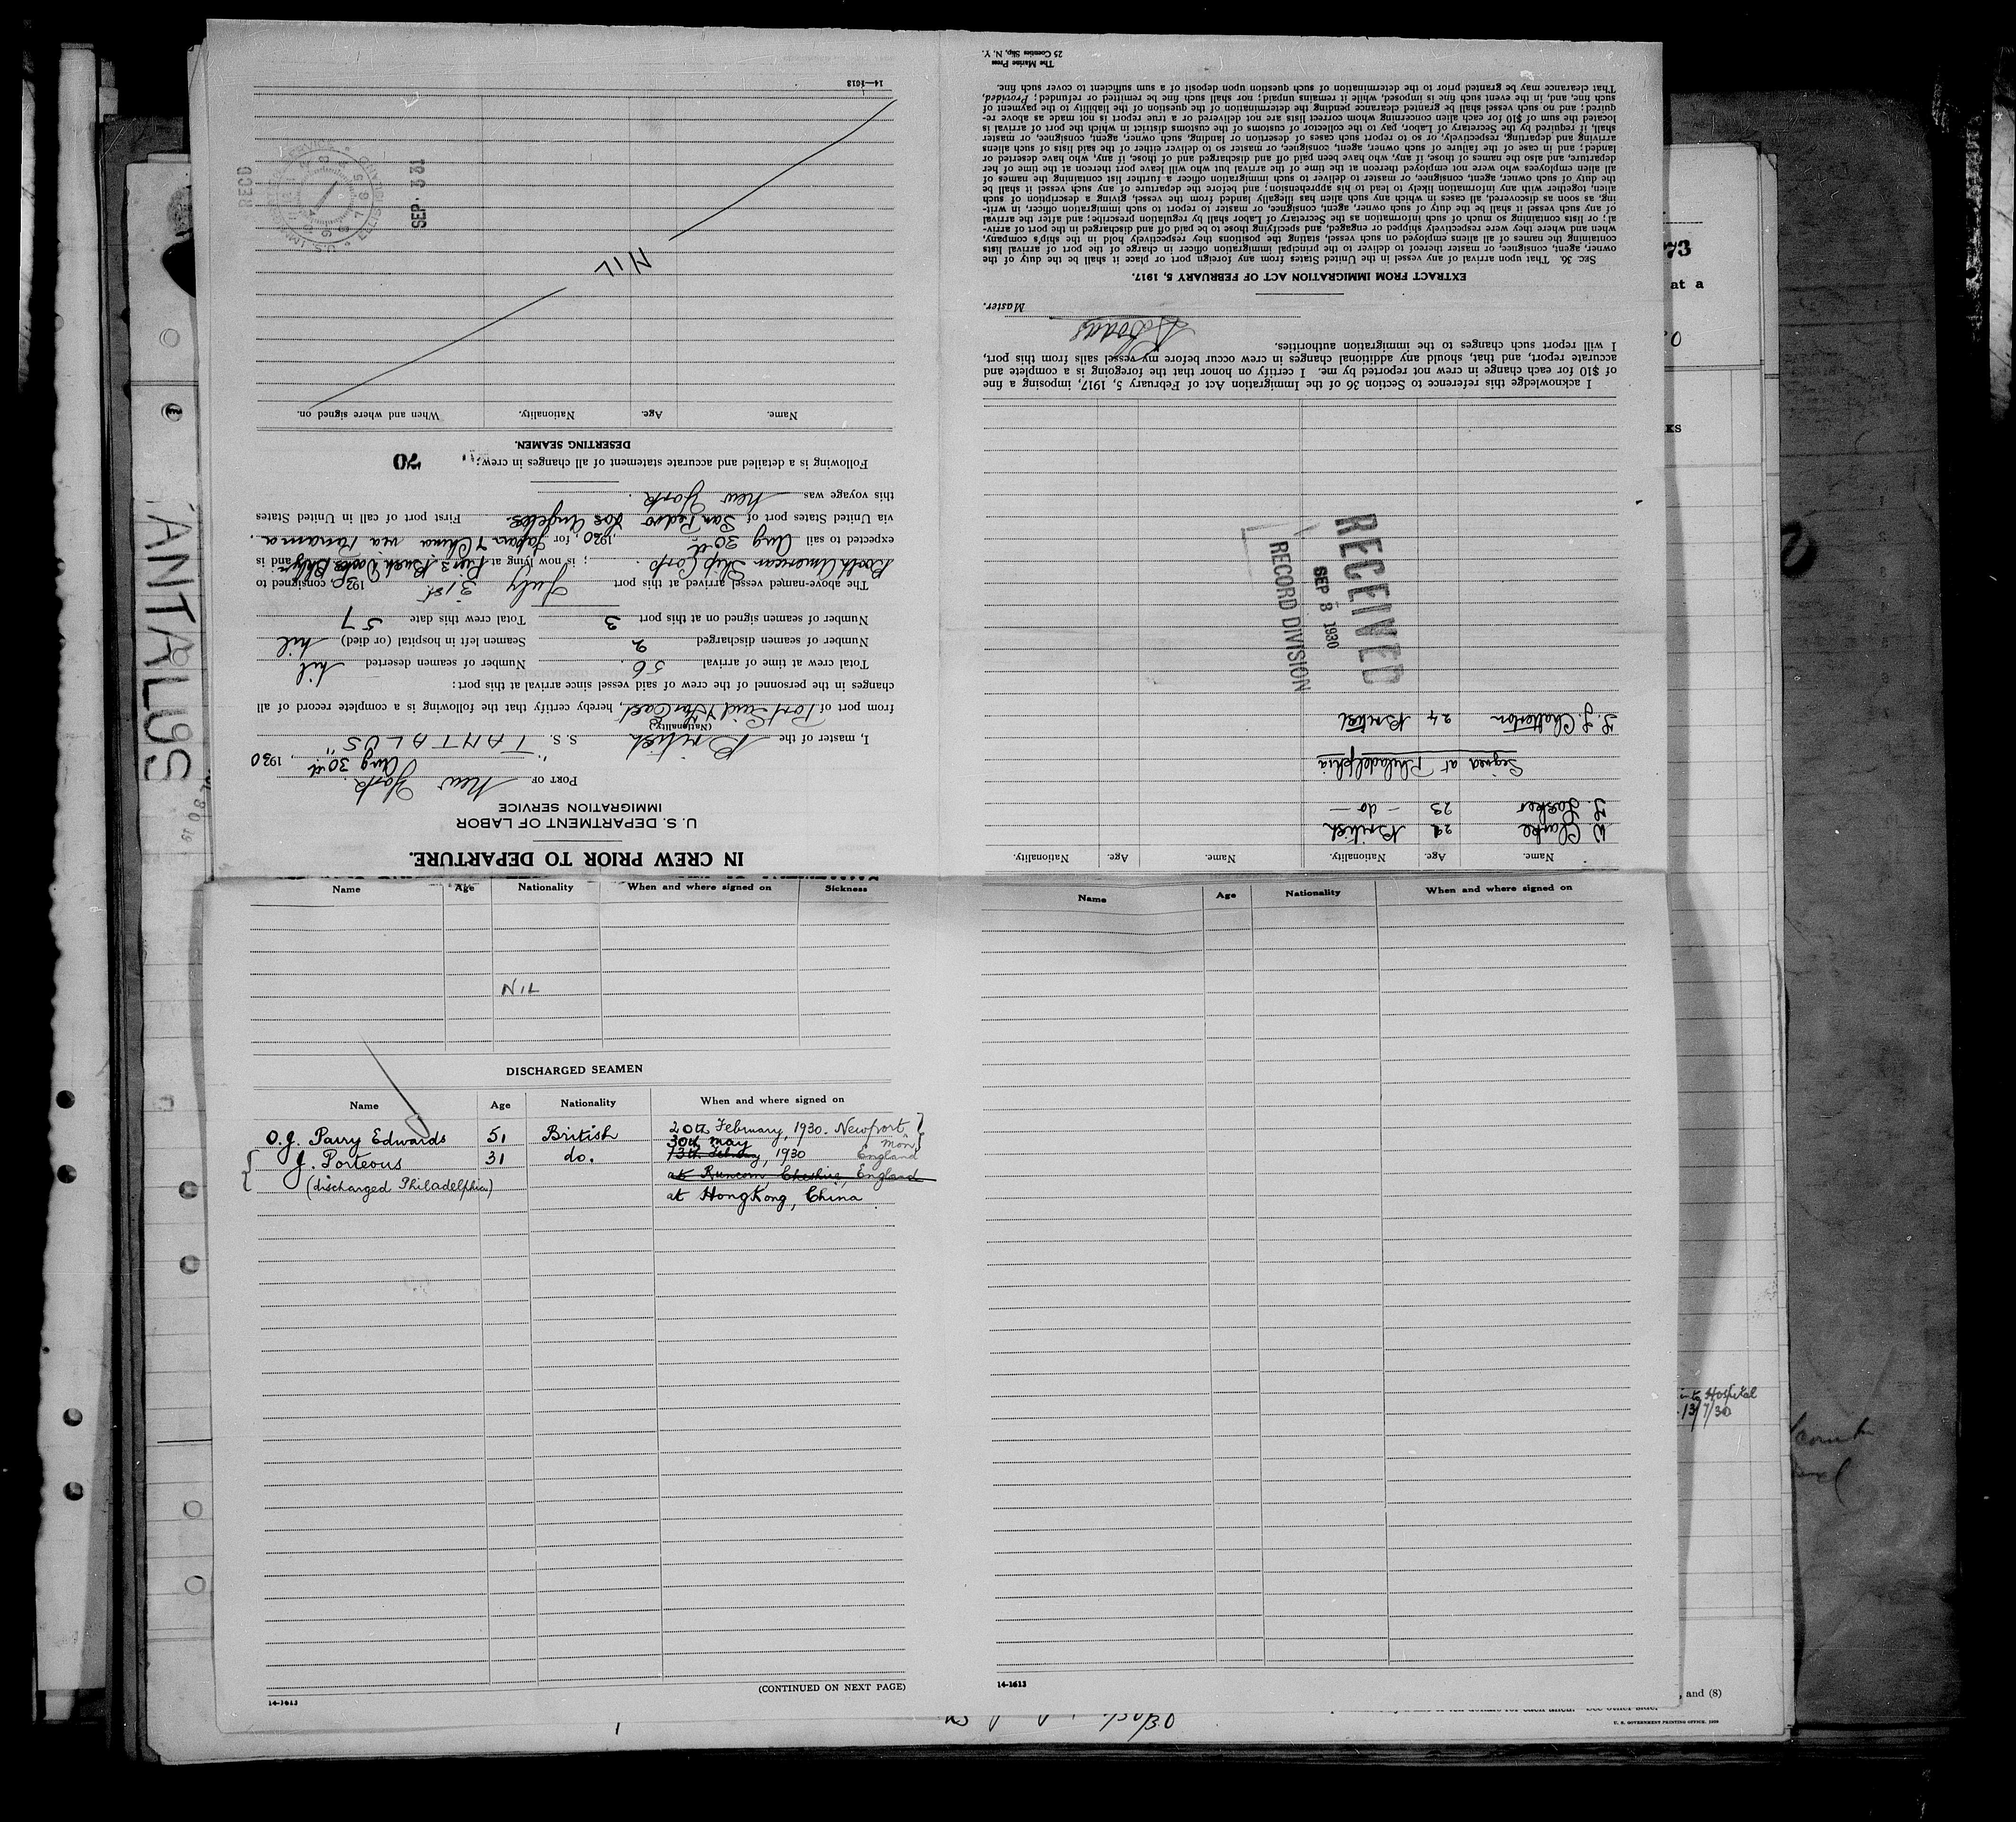 IN CREW PRIOR TO DEPARTURE.
U. S. DEPARTMENT OF LABOR
IMMIGRATION SERVICE
PORT OF New York
Aug 30th, 1930
I, master of the British S. S. "TANTALUS"
(Nationality)
from port of Port Said & Far East, hereby certify that the following is a complete record of all
changes in the personnel of the crew of said vessel since arrival at this port:
Total crew at time of arrival 56. Number of seamen deserted nil
Number of seamen discharged 2 Seamen left in hospital (or died) nil
Number of seamen signed on at this port 3 Total crew this date 57
The above-named vessel arrived at this port July 31st 1930, consigned to
Booth American Ship Corp. ; is now lying at Pier 3 Bush Docks Bklyn and is
expected to sail Aug 30th, 1930, for Japan & China via Panama.
via United States port of San Pedro Los Angeles. First port of call in United States
this voyage was New York.
Following is a detailed and accurate statement of all changes in crew:
70
DESERTING SEAMEN.
Name. Age. Nationality. When and where signed on.
NIL
14—1613
RECD
SEP. 3 31
Name. Age. Nationality. Name. Age. Nationality.
W Clarke 29 British
J. Lasker 23 - do -
Signed at Philadelphia
F. J. Chatterton 24 British
RECEIVED
SEP 8 1930
RECORD DIVISION
I acknowledge this reference to Section 36 of the Immigration Act of February 5, 1917, imposing a fine
of $10 for each change in crew not reported by me. I certify on honor that the foregoing is a complete and
accurate report, and that, should any additional changes in crew occur before my vessel sails from this port,
I will report such changes to the immigration authorities.
Master.
EXTRACT FROM IMMIGRATION ACT OF FEBRUARY 5, 1917.
SEC. 36. That upon arrival of any vessel in the United States from any foreign port or place it shall be the duty of the
owner, agent, consignee, or master thereof to deliver to the principal immigration officer in charge of the port of arrival lists
containing the names of all aliens employed on such vessel, stating the positions they respectively hold in the ship's company,
when and where they were respectively shipped or engaged, and specifying those to be paid off and discharged in the port of arriv-
al; or lists containing so much of such information as the Secretary of Labor shall by regulation prescribe; and after the arrival
of any such vessel it shall be the duty of such owner, agent, consignee, or master to report to such immigration officer, in writ-
ing, as soon as discovered, all cases in which any such alien has illegally landed from the vessel, giving a description of such
alien, together with any information likely to lead to his apprehension; and before the departure of any such vessel it shall be
the duty of such owner, agent, consignee, or master to deliver to such immigration officer a further list containing the names of
all alien employees who were not employed thereon at the time of the arrival but who will leave port thereon at the time of her
departure, and also the names of those, if any, who have been paid off and discharged and of those, if any, who have deserted or
landed; and in case of the failure of such owner, agent, consignee, or master so to deliver either of the said lists of such aliens
arriving and departing, respectively, or so to report such cases of desertion or landing, such owner, agent, consignee, or master
shall, if required by the Secretary of Labor, pay to the collector of customs of the customs district in which the port of arrival is
located the sum of $10 for each alien concerning whom correct lists are not delivered or a true report is not made as above re-
quired; and no such vessel shall be granted clearance pending the determination of the question of the liability to the payment of
such fine, and, in the event such fine is imposed, while it remains unpaid; nor shall such fine be remitted or refunded; Provided,
That clearance may be granted prior to the determination of such question upon deposit of a sum sufficient to cover such fine.
The Marine Press
25 Coenties Slip, N. Y.
Name Age Nationality When and where signed on Sickness
NIL
DISCHARGED SEAMEN
Name Age Nationality When and where signed on
O. J. Parry Edwards 51 British 20th February, 1930. Newport
Mon
30th May
J. Porteous 31 do. 13th February, 1930 England
at Runcorn, Cheshire, England
(discharged Philadelphia)
at HongKong, China
(CONTINUED ON NEXT PAGE)
14-1613
Name Age Nationality When and where signed on
14-1613
TANTALUS
73
at a
KS
Hospital
13/7/30
and (8)
U. S. GOVERNMENT PRINTING OFFICE